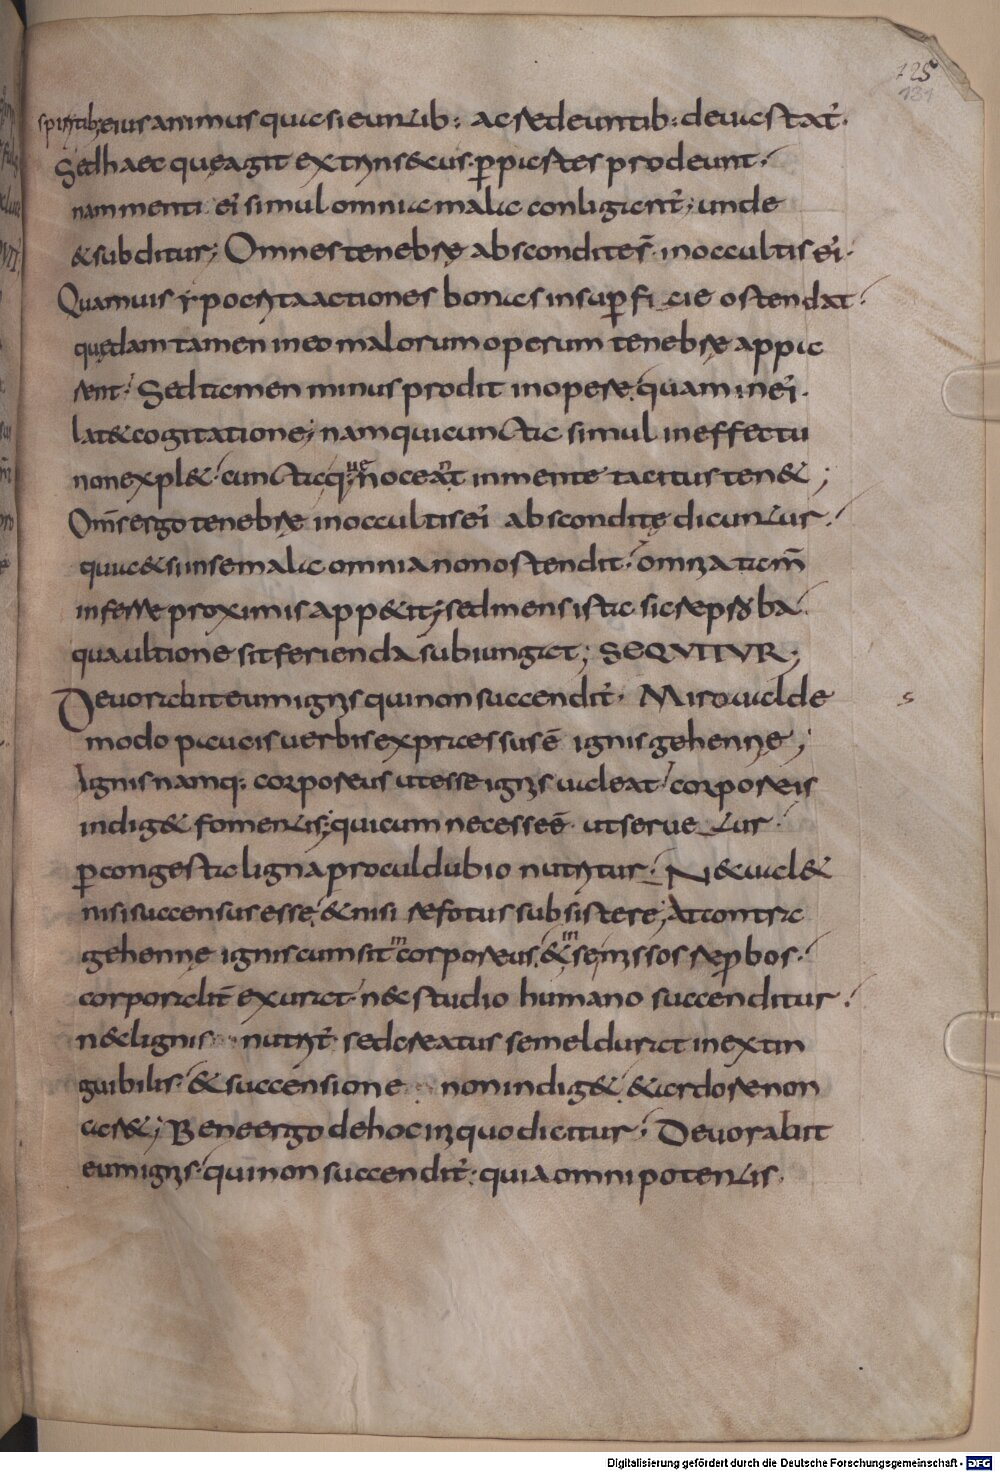 125
131
spiritib; eius animus quasi euntib: ac redeuntib: deuastat̃.
Sed haec que agit extrins&us. ꝑpaetes prodeunt.
nam menti ei simul omnia mala conligunt̃; unde
&subditur; Omnes tenebre absconditȩ s̄. in occultis ei.
Quamuis ypocrita actiones bonas insuꝑficie ostendat.
quȩdam tamen in eo malorum operum tenebrȩ appa
rent. Sed tamen minus prodit in opere. quam in ei.
lat& cogitatione; nam qui cuncta simul in effectu
non expl&. cuncta q: noceant in mente tacitus ten&;
Om̄s ergo tenebrȩ in occultis ei absconditȩ dicuntur.
qui &si in se mala omnia non ostendit. omnia tam̄
inferre proximis app&it; sed mens ista sic reproba
qua ultione sit ferienda subiungat; SEQUITUR;
Deuorabit eum ignis qui non succendit̃. Miro ualde
modo paucis uerbis expressus ē ignis gehennȩ;
Ignis namq: corporeus ut esse ignis ualeat. corporeis
indig& fomentis; qui cum necesse ē. ut seruetur.
ꝑ congesta ligna procul dubio nutritur. N& ual&
nisi succensus esse. & nisi refotus subsistere; At contra
gehennȩ ignis cum sit corporeus. & in se missos reprobos.
corporalit̄ exurat. n& studio humano succenditur.
n& lignis nutrit̃. sed creatus semel durat inextin
guibilis. & succensione non indig&. & ardore non
car&; Bene ergo de hoc iniquo dicitur. Deuorabit
eum ignis. qui non succendit̃. quia omnipotentis.
s
Digitalisierung gefördert durch die Deutsche Forschungsgemeinschaft - DFG